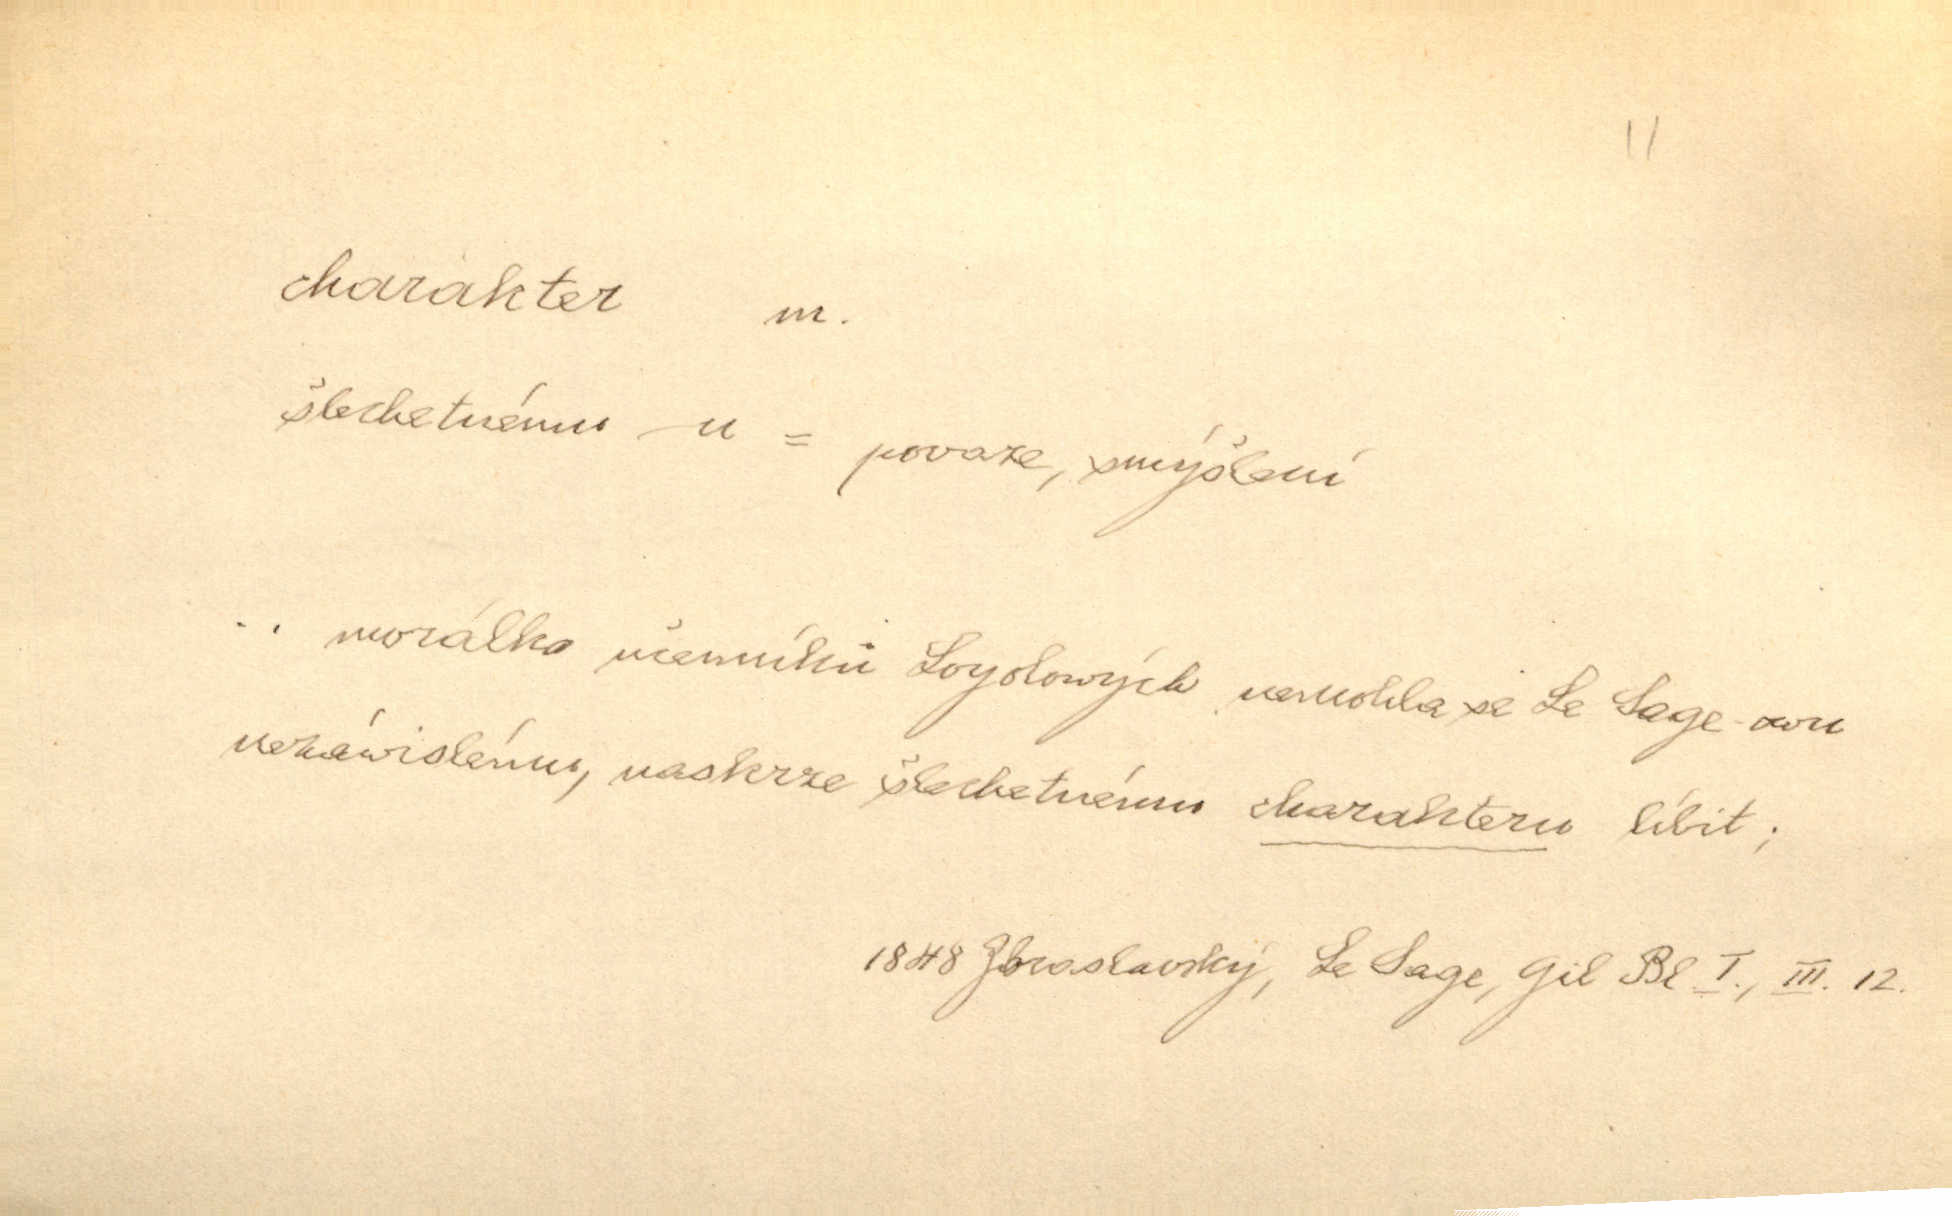 11
charakter m.
šlechetnému —u = povaze, smýšlení
.. morálka učenníků Loyolowých nemohla se Le Sage-owu
nezáwislému, naskrze šlechetnému charakteru líbit;
1848 Zbraslavský, Le Sage, Gil Bl. I., III. 12.